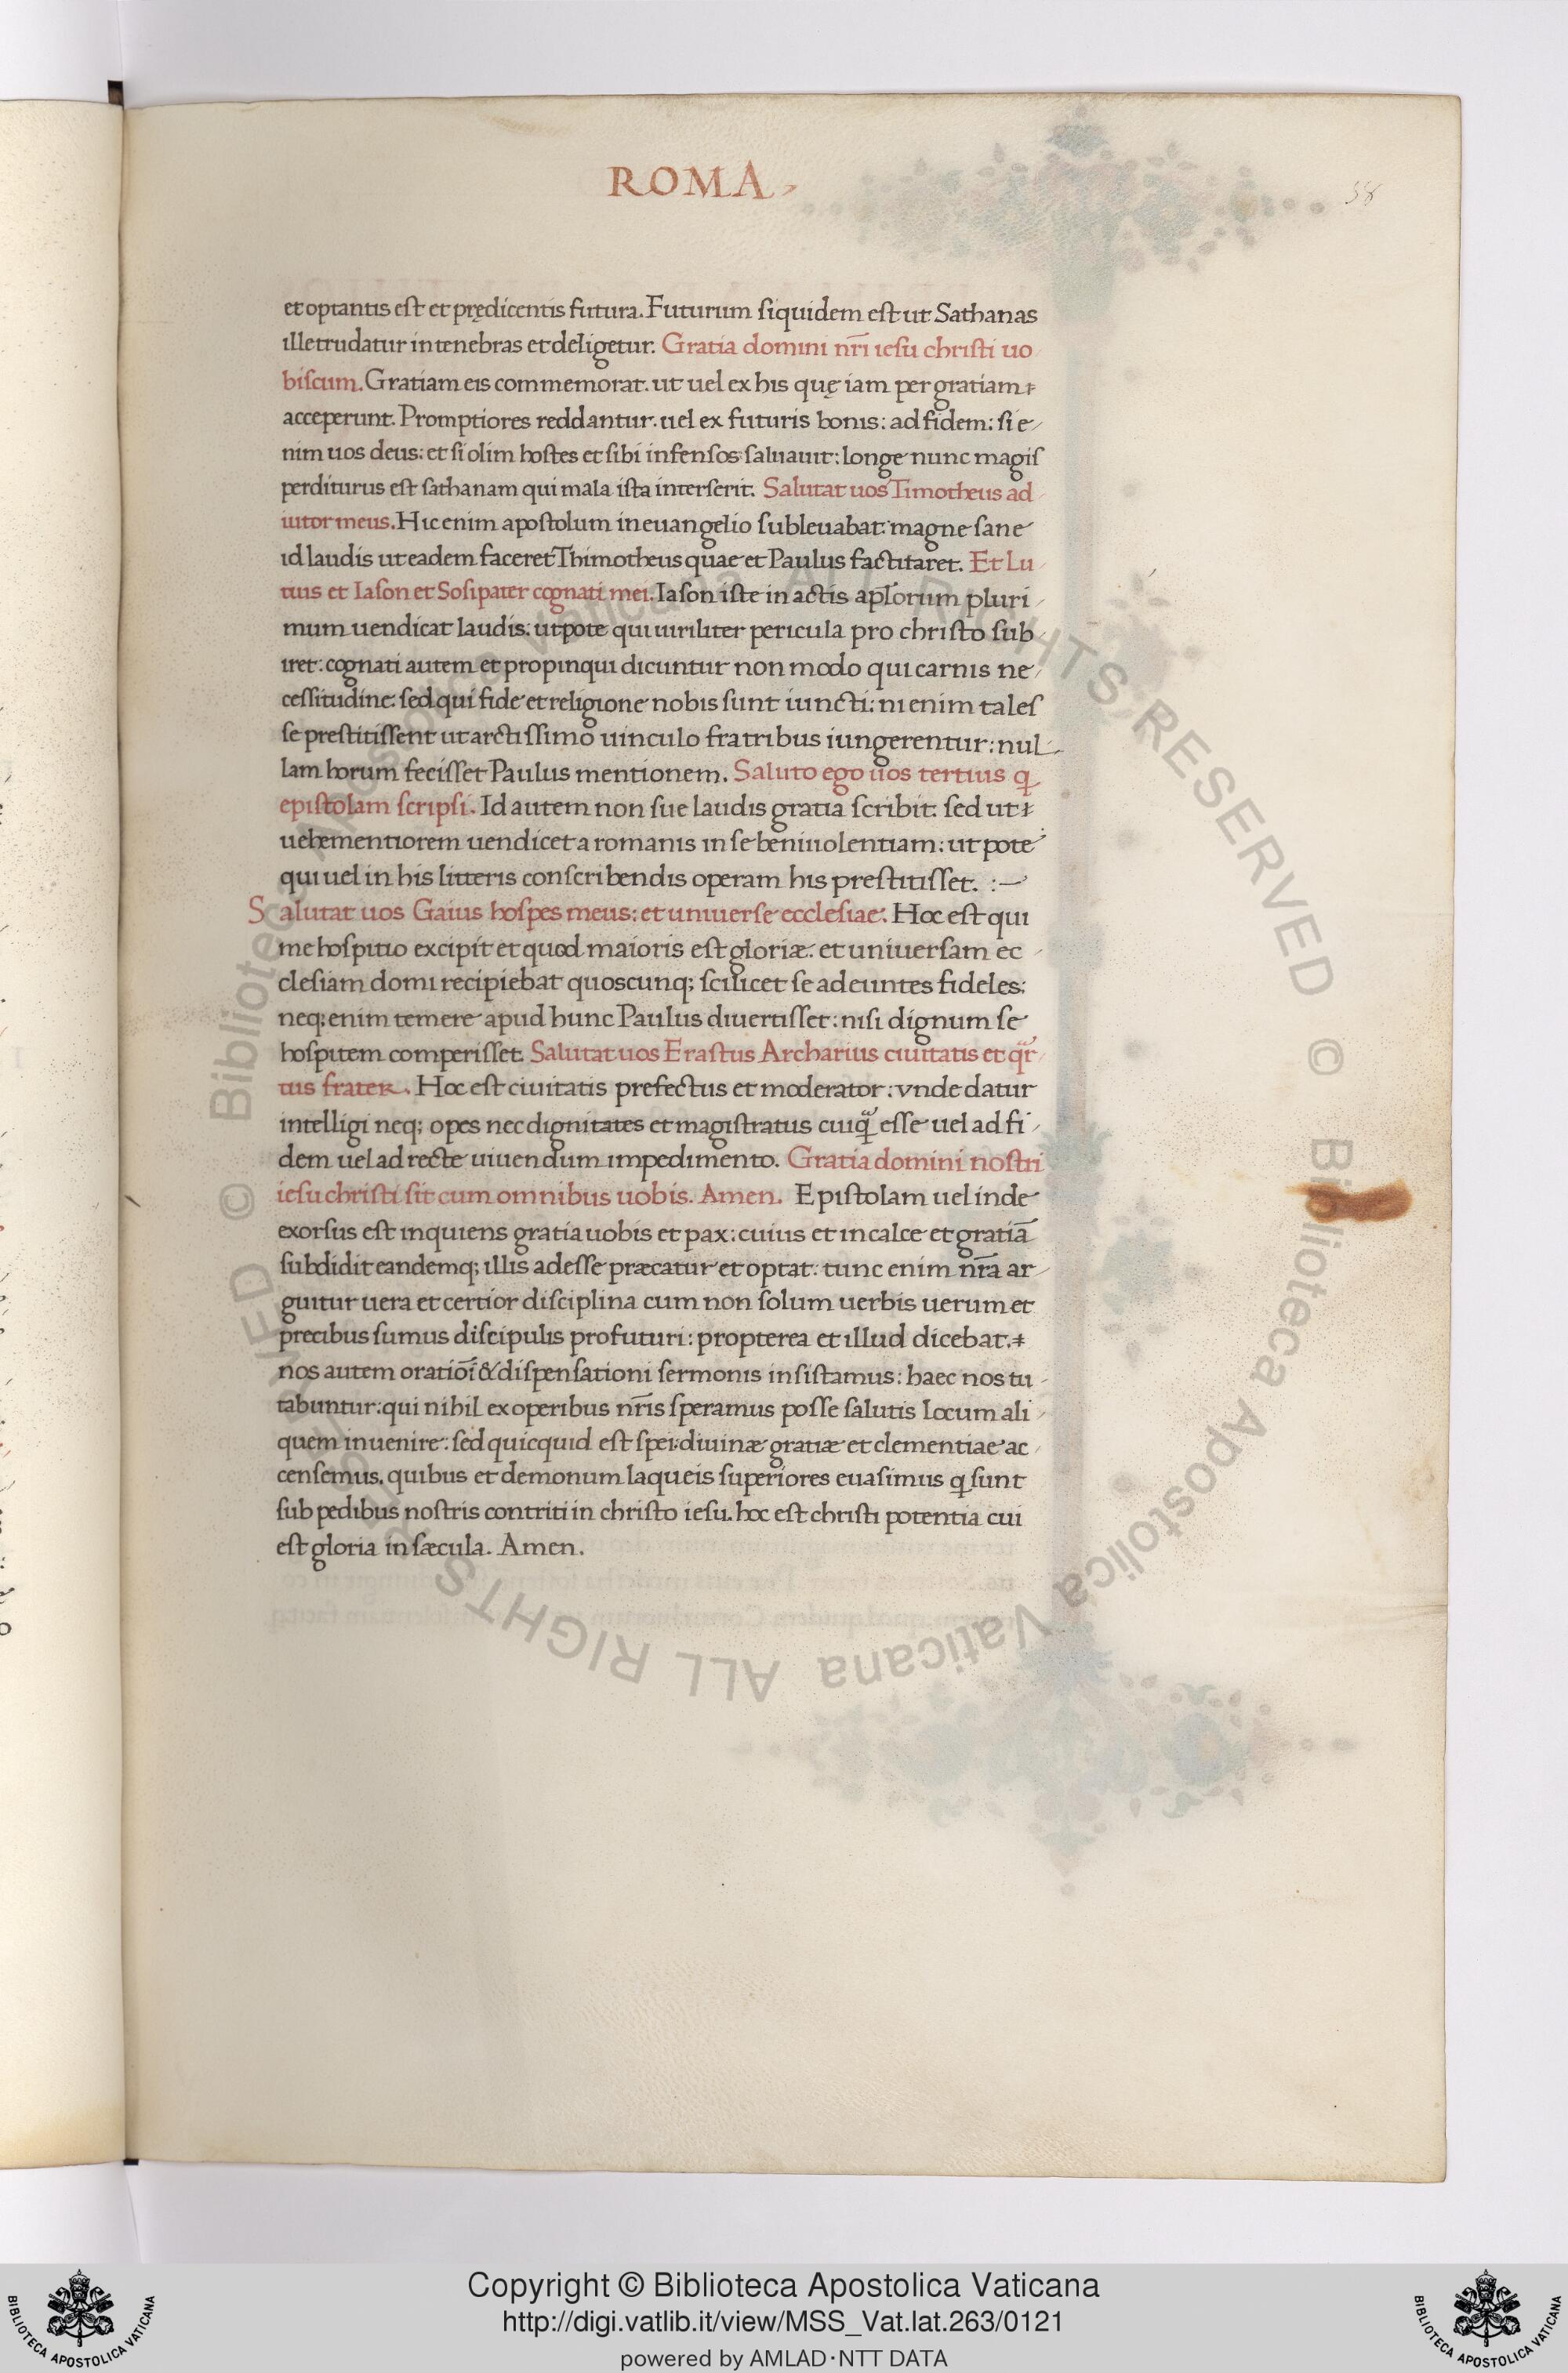 ROMA
58
et optantis est et prędicentis futura. Futurum siquidem est ut Sathanas
ille trudatur in tenebras et deligetur. Gratia domini nr̄i iesu christi uo
biscum. Gratiam eis commemorat. ut uel ex his quę iam per gratiam
acceperunt. Promptiores reddantur. uel ex futuris bonis: ad fidem: si e
nim uos deus: et si olim hostes et sibi infensos saluauit: longe nunc magis
perditurus est sathanam qui mala ista interserit. Salutat uos Timotheus ad
iutor meus. Hic enim apostolum in euangelio subleuabat: magne sane
id laudis ut eadem faceret Thimotheus quae et Paulus factitaret. Et Lu
tius et Iason et Sosipater cognati mei. Iason iste in actis apl'orum pluri
mum uendicat laudis: utpote qui uiriliter pericula pro christo sub
iret: cognati autem et propinqui dicuntur non modo qui carnis ne
cessitudine: sed qui fide et religione nobis sunt iuncti: ni enim tales
se prestitissent ut arctissimo uinculo fratribus iungerentur: nul
lam horum fecisset Paulus mentionem. Saluto ego uos tertius q̄
epistolam scripsi. Id autem non sue laudis gratia scribit. sed ut
uehementiorem uendicet a romanis in se beniuolentiam: ut pote
qui uel in his litteris conscribendis operam his prestitisset. :—
Salutat uos Gaius hospes meus: et uniuerse ecclesiae: Hoc est qui
me hospitio excipit et quod maioris est gloriæ: et uniuersam ec
clesiam domi recipiebat quoscunq; scilicet se adeuntes fideles:
neq; enim temere apud hunc Paulus diuertisset: nisi dignum se
hospitem comperisset. Salutat uos Erastus Archarius ciuitatis et q̄r
tus frater. Hoc est ciuitatis prefectus et moderator: vnde datur
intelligi neq; opes nec dignitates et magistratus cuiq̄ esse uel ad fi
dem uel ad recte uiuendum impedimento. Gratia domini nostri
iesu christi sit cum omnibus uobis. Amen. Epistolam uel inde
exorsus est inquiens gratia uobis et pax: cuius et in calce et gratiā
subdidit eandemq; illis adesse præcatur et optat: tunc enim nr̄a ar
guitur uera et certior disciplina cum non solum uerbis uerum et
precibus sumus discipulis profuturi: propterea et illud dicebat.
nos autem oratiōi & dispensationi sermonis insistamus: haec nos tu
tabuntur: qui nihil ex operibus nr̄is speramus posse salutis locum ali
quem inuenire: sed quicquid est spei: diuinæ gratiæ et clementiae ac
censemus. quibus et demonum laqueis superiores euasimus q̄ sunt
sub pedibus nostris contriti in christo iesu. hoc est christi potentia cui
est gloria in sæcula. Amen.
© Biblioteca Apostolica Vaticana ALL RIGHTS RESERVED © Biblioteca Apostolica Vaticana ALL RIGHTS RESERVED
Copyright © Biblioteca Apostolica Vaticana
http://digi.vatlib.it/view/MSS_Vat.lat.263/0121
powered by AMLAD·NTT DATA
BIBLIOTECA APOSTOLICA VATICANA
BIBLIOTECA APOSTOLICA VATICANA